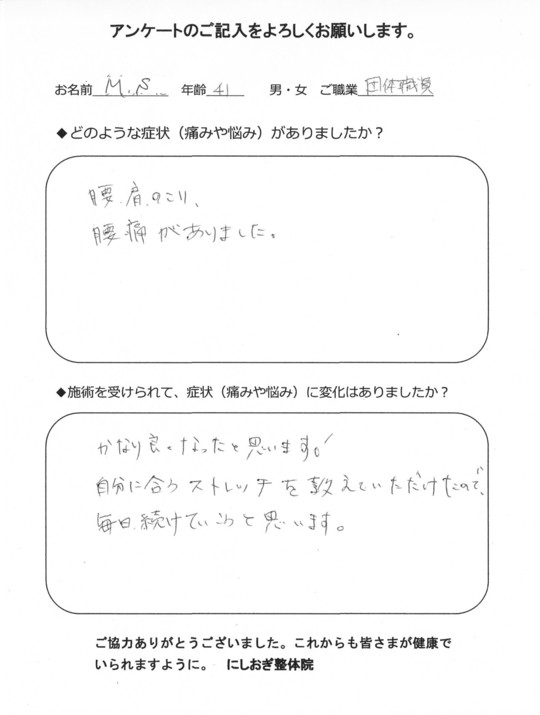 アンケートのご記入をよろしくお願いします。
お名前 M.S. 年齢 41 男・女 ご職業 団体職員
◆どのような症状（痛みや悩み）がありましたか？
腰、肩のこり、
腰痛がありました。
◆施術を受けられて、症状（痛みや悩み）に変化はありましたか？
かなり良くなったと思います。
自分に合うストレッチを教えていただけたので、
毎日続けていこうと思います。
ご協力ありがとうございました。これからも皆さまが健康で
いられますように。 にしおぎ整体院